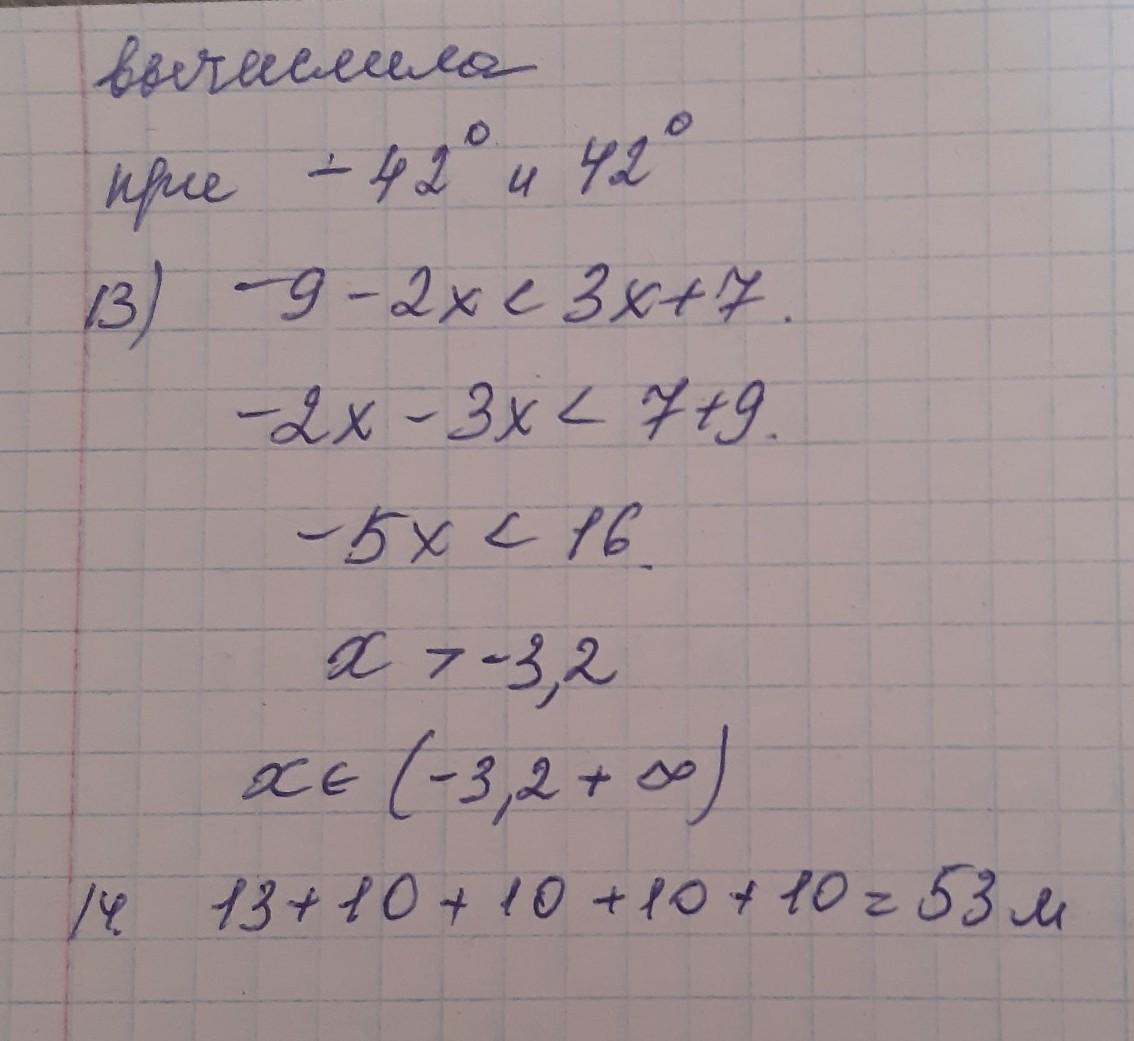 вычислила
при -42° и 42°
13) -9 - 2x < 3x + 7.
-2x - 3x < 7 + 9.
-5x < 16.
x > -3,2
x ∈ (-3,2 + ∞)
14 13 + 10 + 10 + 10 + 10 = 53 м